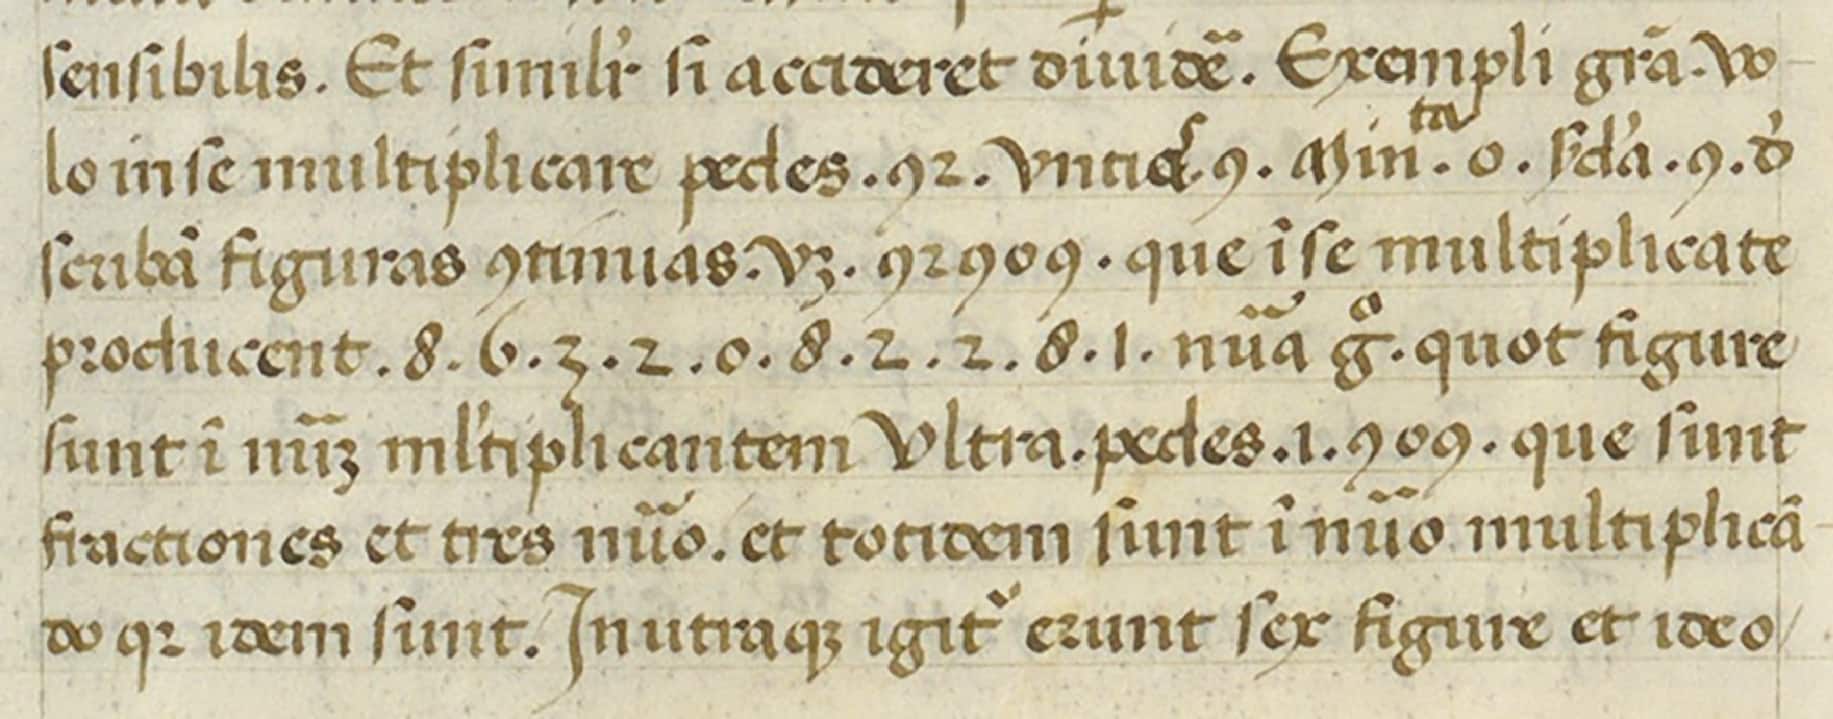 sensibilis. Et similr̃ si accideret diuidẽ. Exempli grã. vo
lo in se multiplicare pedes. 92. vnciaꝭ. 9. Minᵗᵃ. 0. scd'a. 9. d'
scribã figuras ꝯtinuas. vꝫ. 92909. que ĩ se multiplicate
producent. 8. 6. 3. 2. 0. 8. 2. 2. 8. 1. nũa gͦ. quot figure
sunt ĩ nũꝫ ml'tiplicantem vltra. pedes. 1. 909. que sunt
fractiones et tres nũo. et totidem sunt ĩ nũo multiplicã
do qꝛ idem sunt. In utraqꝫ igit᷑ erunt sex figure et ideo